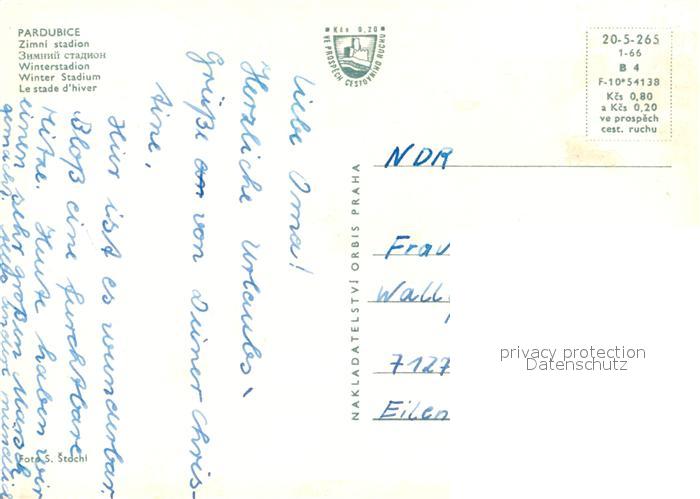 PARDUBICE
Zimní stadion
Зимний стадион
Winterstadion
Winter Stadium
Le stade d'hiver
Kčs 0,20
VE PROSPĚCH CESTOVNÍHO RUCHU
20-5-265
1-66
B 4
F-10*54138
Kčs 0,80
a Kčs 0,20
ve prospěch
cest. ruchu
Liebe Oma!
Herzliche Urlaubs-
grüße von Deiner Chris-
tine,
Hier ist es wunderbar.
Bloß eine furchtbare
Hitze. Heute haben wir
einen sehr großen Marsch
gemacht. mündlich
Foto S. Štochl
NAKLADATELSTVÍ ORBIS PRAHA
NDR
Frau
Wall
7127
Eilen
privacy protection
Datenschutz